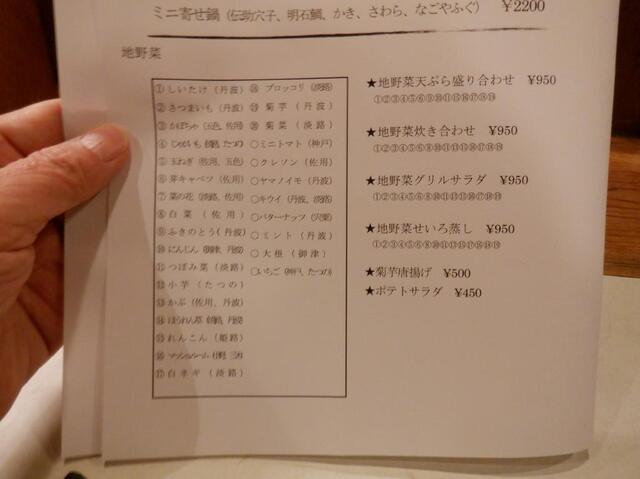 ミニ寄せ鍋（伝助穴子、明石鯛、かき、さわら、なごやふぐ） ￥2200
地野菜
①しいたけ（丹波）
②さつまいも（丹波）
③かぼちゃ（五色、佐用）
④じゃがいも（淡路、たつの）
⑤玉ねぎ（佐用、五色）
⑥芽キャベツ（佐用）
⑦菜の花（淡路、佐用）
⑧白菜（佐用）
⑨ふきのとう（丹波）
⑩にんじん（御津、丹波）
⑪つぼみ菜（淡路）
⑫小芋（たつの）
⑬かぶ（佐用、丹波）
⑭ほうれん草（淡路、丹波）
⑮れんこん（姫路）
⑯マッシュルーム（三木）
⑰白ネギ（淡路）
⑱ブロッコリ（淡路）
⑲菊芋（丹波）
⑳菊菜（淡路）
○ミニトマト（神戸）
○クレソン（佐用）
○ヤマノイモ（丹波）
○キウイ（丹波、淡路）
○バターナッツ（宍粟）
○ミント（丹波）
○大根（御津）
○いちご（神戸、たつの）
★地野菜天ぷら盛り合わせ ￥950
①②③④⑤⑥⑨⑩⑪⑮⑯⑰⑱⑲
★地野菜炊き合わせ ￥950
★地野菜グリルサラダ ￥950
★地野菜せいろ蒸し ￥950
★菊芋唐揚げ ￥500
★ポテトサラダ ￥450